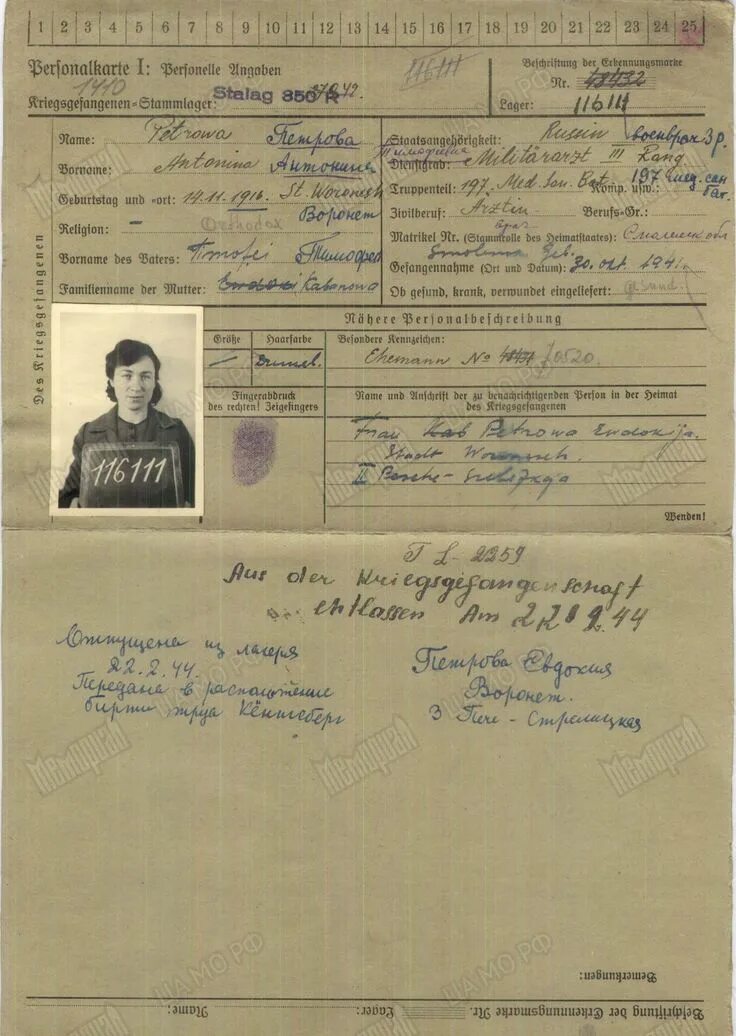 1 2 3 4 5 6 7 8 9 10 11 12 13 14 15 16 17 18 19 20 21 22 23 24 25
Personalkarte I: Personelle Angaben
116111
Beschriftung der Erkennungsmarke
Nr. 48432
1410
Kriegsgefangenen-Stammlager: Stalag 350
Lager: 116111
Des Kriegsgefangenen
Name: Petrowa Петрова
Vorname: Antonina Антонина
Тимофеевна
Geburtstag und -ort: 14.11.1916. St. Woronesh
Воронеж
Religion: - Orthodox
Vorname des Vaters: Timofei Тимофей
Familienname der Mutter: Kabanowa
Staatsangehörigkeit: Russin военврач 3 р.
Dienstgrad: Militärarzt III Rang
Truppenteil: 197. Med. San. Bat. Komp. usw.: 197 сан бат.
Zivilberuf: Ärztin Berufs-Gr.:
врач
Matrikel Nr. (Stammrolle des Heimatstaates): Смоленск обл
Smolensk Geb.
Gefangennahme (Ort und Datum): 30. okt. 1941.
Ob gesund, krank, verwundet eingeliefert: gesund.
Nähere Personalbeschreibung
Größe Haarfarbe Besondere Kennzeichen:
- Dunkel. Ehemann No 10520.
Fingerabdruck
des rechten! Zeigefingers
Name und Anschrift der zu benachrichtigenden Person in der Heimat
des Kriegsgefangenen
Frau Petrowa Ewdokija.
Stadt Woronesch.
116111
Wenden!
T L-2259
Aus der Kriegsgefangenschaft
entlassen Am 44
Отпущена из лагеря
22.2.44.
Передана в распоряжение
биржи труда Кёнигсберг
Петрова Евдокия
Воронеж.
3 Пече-Стрелицкая
Bemerkungen:
Name: Lager: Beschriftung der Erkennungsmarke Nr.
Мемориал
ЦАМО РФ